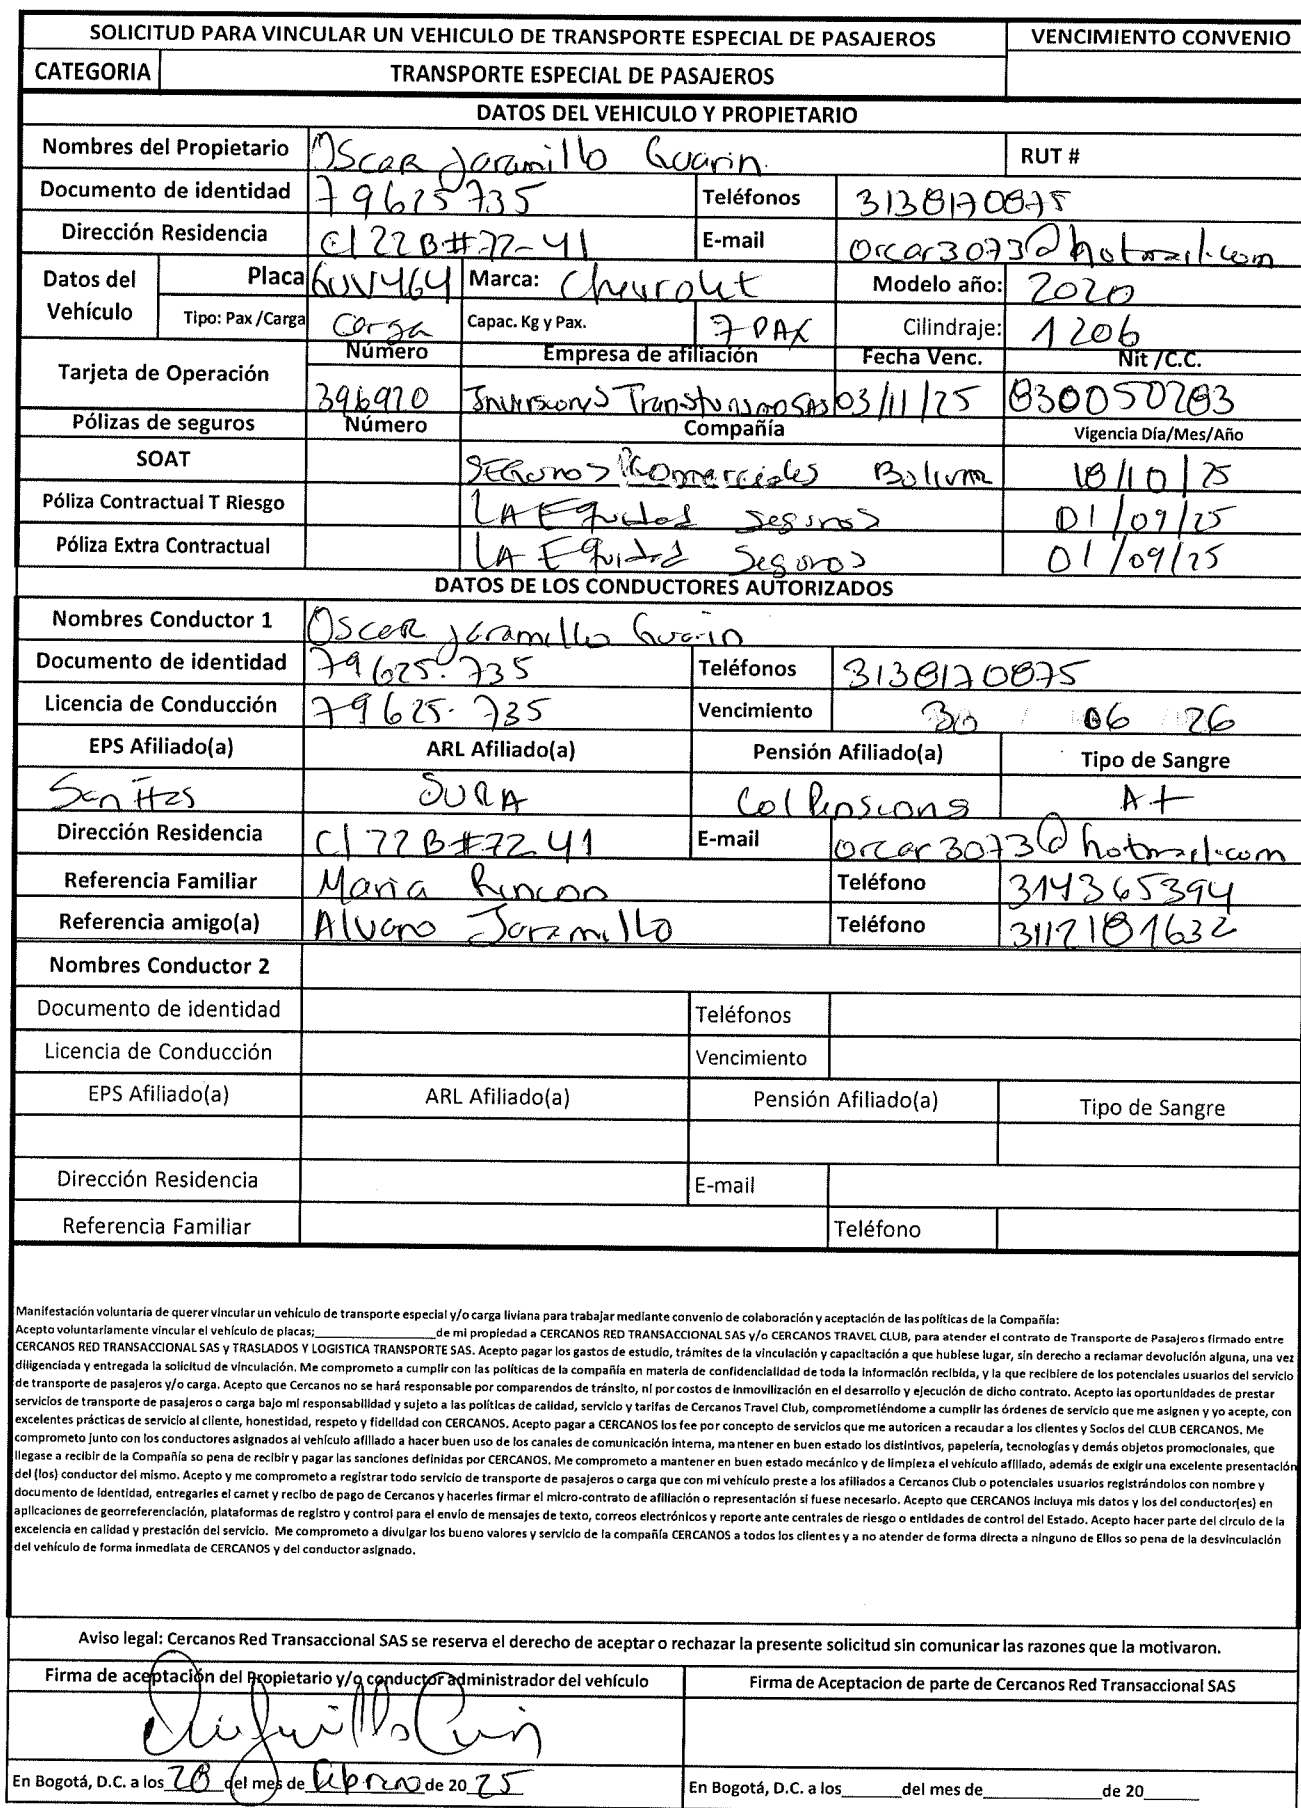 SOLICITUD PARA VINCULAR UN VEHICULO DE TRANSPORTE ESPECIAL DE PASAJEROS VENCIMIENTO CONVENIO
CATEGORIA TRANSPORTE ESPECIAL DE PASAJEROS
DATOS DEL VEHICULO Y PROPIETARIO
Nombres del Propietario Oscar Jaramillo Guarin. RUT #
Documento de identidad 79625735 Teléfonos 3138170875
Dirección Residencia Cl 22B#72-41 E-mail orcar3073@hotmail.com
Datos del Vehículo Placa GUV464 Marca: Chevrolet Modelo año: 2020
Tipo: Pax /Carga Carga Capac. Kg y Pax. 7 PAX Cilindraje: 1206
Tarjeta de Operación Número Empresa de afiliación Fecha Venc. Nit /C.C.
396920 Inversiones Transturismo SAS 03/11/25 830050283
Pólizas de seguros Número Compañía Vigencia Día/Mes/Año
SOAT Seguros Comerciales Bolivar 18/10/25
Póliza Contractual T Riesgo LA Equidad Seguros 01/09/25
Póliza Extra Contractual LA Equidad Seguros 01/09/25
DATOS DE LOS CONDUCTORES AUTORIZADOS
Nombres Conductor 1 Oscar Jaramillo Guarin
Documento de identidad 79625.735 Teléfonos 3138170875
Licencia de Conducción 79625.735 Vencimiento 30 / 06 / 26
EPS Afiliado(a) ARL Afiliado(a) Pensión Afiliado(a) Tipo de Sangre
Sanitas SURA Colpensions A+
Dirección Residencia Cl 22B#72-41 E-mail orcar3073@hotmail.com
Referencia Familiar Maria Rincon Teléfono 3143365394
Referencia amigo(a) Alvaro Jaramillo Teléfono 3112181632
Nombres Conductor 2
Documento de identidad Teléfonos
Licencia de Conducción Vencimiento
EPS Afiliado(a) ARL Afiliado(a) Pensión Afiliado(a) Tipo de Sangre
Dirección Residencia E-mail
Referencia Familiar Teléfono
Manifestación voluntaria de querer vincular un vehículo de transporte especial y/o carga liviana para trabajar mediante convenio de colaboración y aceptación de las políticas de la Compañía:
Acepto voluntariamente vincular el vehículo de placas;____________________de mi propiedad a CERCANOS RED TRANSACCIONAL SAS y/o CERCANOS TRAVEL CLUB, para atender el contrato de Transporte de Pasajeros firmado entre
CERCANOS RED TRANSACCIONAL SAS y TRASLADOS Y LOGISTICA TRANSPORTE SAS. Acepto pagar los gastos de estudio, trámites de la vinculación y capacitación a que hubiese lugar, sin derecho a reclamar devolución alguna, una vez
diligenciada y entregada la solicitud de vinculación. Me comprometo a cumplir con las políticas de la compañía en materia de confidencialidad de toda la información recibida, y la que recibiere de los potenciales usuarios del servicio
de transporte de pasajeros y/o carga. Acepto que Cercanos no se hará responsable por comparendos de tránsito, ni por costos de inmovilización en el desarrollo y ejecución de dicho contrato. Acepto las oportunidades de prestar
servicios de transporte de pasajeros o carga bajo mi responsabilidad y sujeto a las políticas de calidad, servicio y tarifas de Cercanos Travel Club, comprometiéndome a cumplir las órdenes de servicio que me asignen y yo acepte, con
excelentes prácticas de servicio al cliente, honestidad, respeto y fidelidad con CERCANOS. Acepto pagar a CERCANOS los fee por concepto de servicios que me autoricen a recaudar a los clientes y Socios del CLUB CERCANOS. Me
comprometo junto con los conductores asignados al vehículo afiliado a hacer buen uso de los canales de comunicación interna, mantener en buen estado los distintivos, papelería, tecnologías y demás objetos promocionales, que
llegase a recibir de la Compañía so pena de recibir y pagar las sanciones definidas por CERCANOS. Me comprometo a mantener en buen estado mecánico y de limpieza el vehículo afiliado, además de exigir una excelente presentación
del (los) conductor del mismo. Acepto y me comprometo a registrar todo servicio de transporte de pasajeros o carga que con mi vehículo preste a los afiliados a Cercanos Club o potenciales usuarios registrándolos con nombre y
documento de identidad, entregarles el carnet y recibo de pago de Cercanos y hacerles firmar el micro-contrato de afiliación o representación si fuese necesario. Acepto que CERCANOS incluya mis datos y los del conductor(es) en
aplicaciones de georreferenciación, plataformas de registro y control para el envío de mensajes de texto, correos electrónicos y reporte ante centrales de riesgo o entidades de control del Estado. Acepto hacer parte del circulo de la
excelencia en calidad y prestación del servicio. Me comprometo a divulgar los bueno valores y servicio de la compañía CERCANOS a todos los clientes y a no atender de forma directa a ninguno de Ellos so pena de la desvinculación
del vehículo de forma inmediata de CERCANOS y del conductor asignado.
Aviso legal: Cercanos Red Transaccional SAS se reserva el derecho de aceptar o rechazar la presente solicitud sin comunicar las razones que la motivaron.
Firma de aceptación del Propietario y/o conductor administrador del vehículo Firma de Aceptacion de parte de Cercanos Red Transaccional SAS
En Bogotá, D.C. a los 28 del mes de febrero de 20 25 En Bogotá, D.C. a los______del mes de____________de 20______